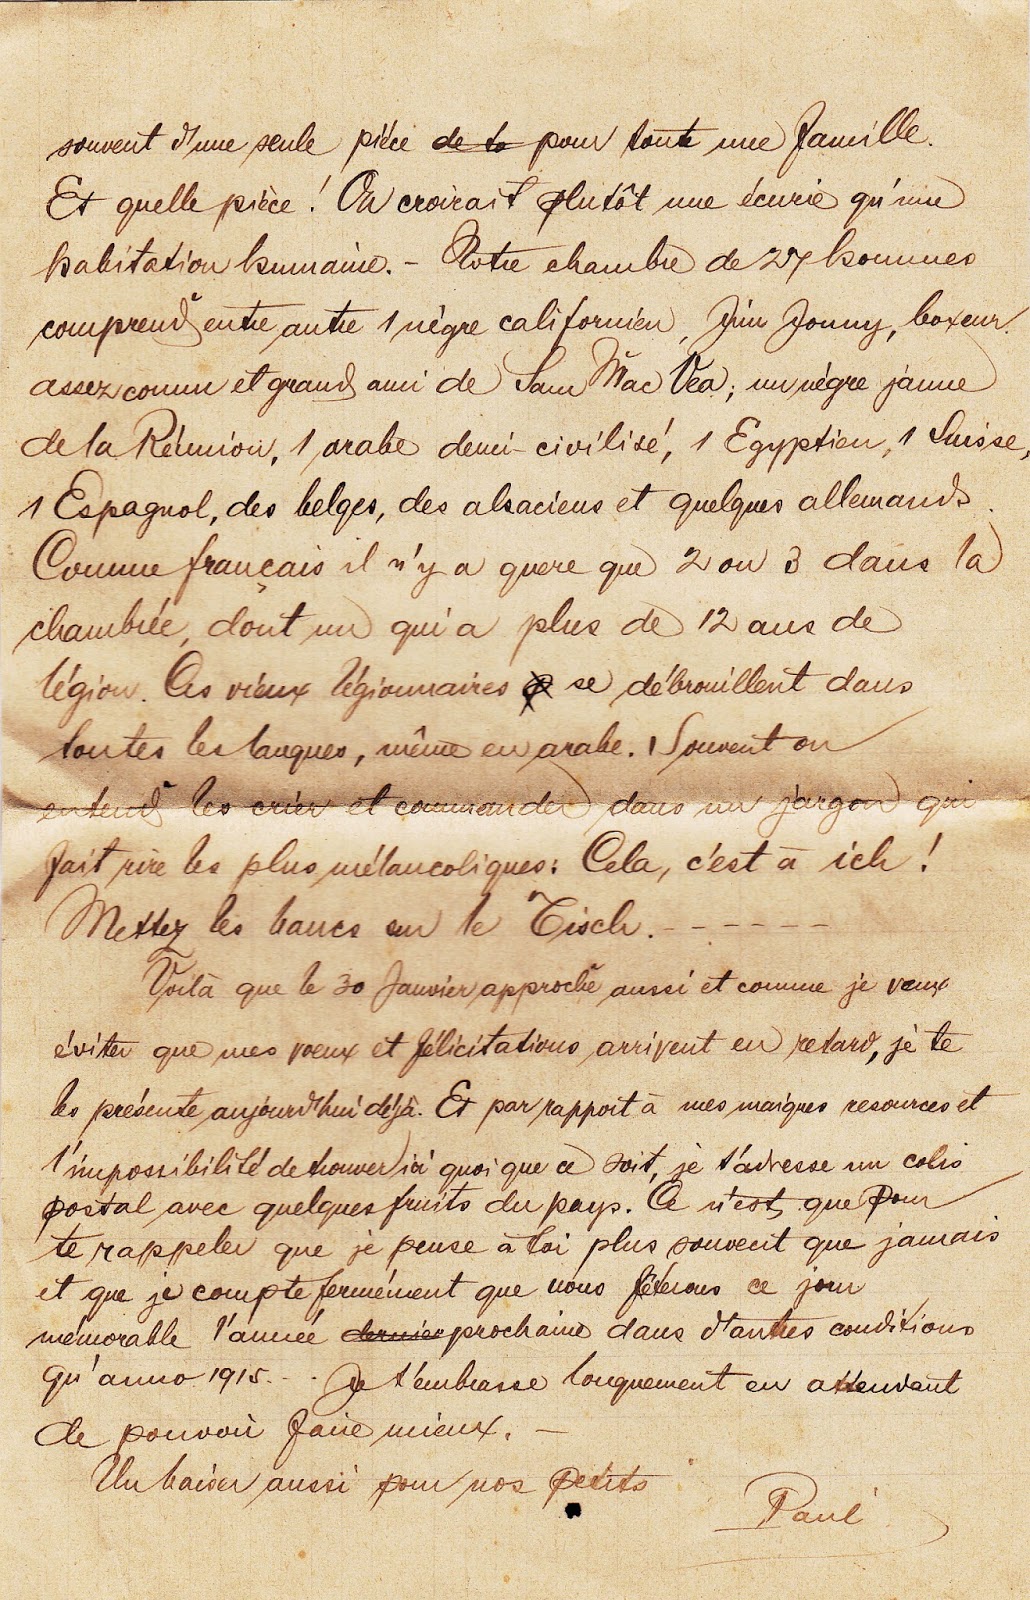 souvent d'une seule pièce de to pour toute une famille.
Et quelle pièce! On croirait plutôt une écurie qu'une
habitation humaine. - Notre chambre de 27 hommes
comprend entre autre 1 nègre californien, Jim Jonny, boxeur
assez connu et grand ami de Sam Mac Vea; un nègre jaune
de la Réunion, 1 arabe demi-civilisé, 1 Egyptien, 1 Suisse,
1 Espagnol, des belges, des alsaciens et quelques allemands.
Comme français il n'y a guere que 2 ou 3 dans la
chambrée, dont un qui a plus de 12 ans de
légion. Ces vieux légionnaires se débrouillent dans
toutes les langues, même en arabe. Souvent on
entend les crier et commander dans un jargon qui
fait rire les plus mélancoliques: Cela, c'est à ich!
Mettez les bancs sur le Tisch. - - - - - -
Voilà que le 30 Janvier approche aussi et comme je veux
éviter que mes voeux et félicitations arrivent en retard, je te
les présente aujourd'hui déjà. Et par rapport à mes maigres resources et
l'impossibilité de trouver ici quoique ce soit, je t'adresse un colis
postal avec quelques fruits du pays. Ce n'est que pour
te rappeler que je pense à toi plus souvent que jamais
et que je compte fermément que nous fêterons ce jour
mémorable l'année dernier prochaine dans d'autres conditions
qu'anno 1915. - . Je t'embrasse longuement en attendant
de pouvoir faire mieux. -
Un baiser aussi pour nos petits
Paul